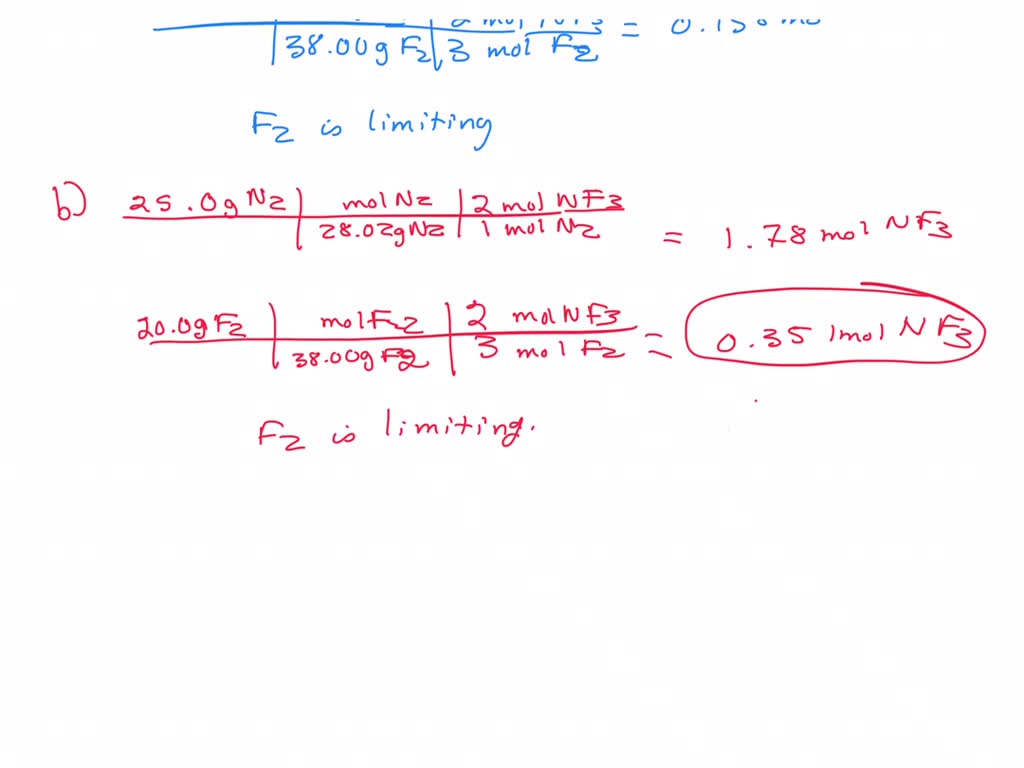 2 mol NF3 = 0.158 mo
38.00g F2 3 mol F2
F2 is limiting
b) 25.0g N2 mol N2 2 mol NF3
28.02g N2 1 mol N2 = 1.78 mol NF3
20.0g F2 mol F2 2 mol NF3
38.00g F2 3 mol F2 = 0.351mol NF3
F2 is limiting.